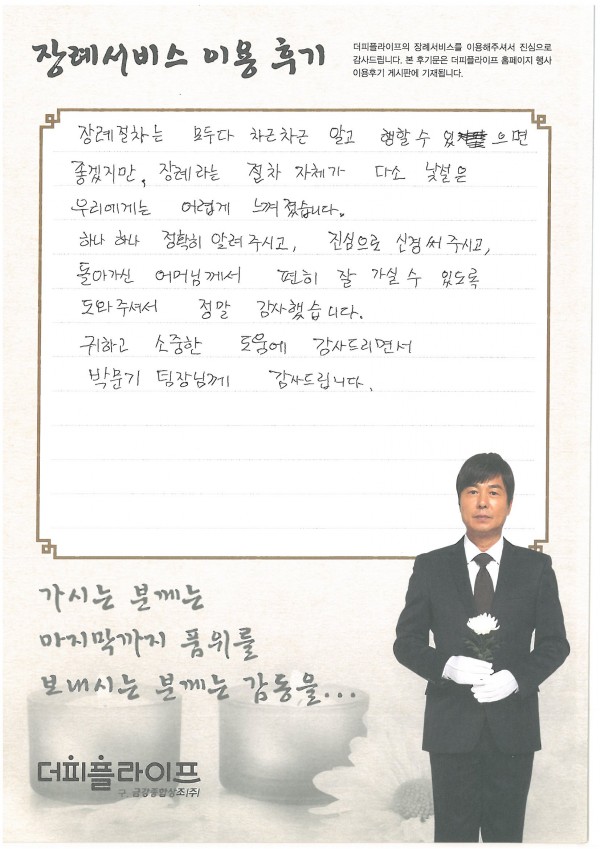 장례서비스 이용 후기
더피플라이프의 장례서비스를 이용해주셔서 진심으로
감사드립니다. 본 후기문은 더피플라이프 홈페이지 행사
이용후기 게시판에 기재됩니다.
장례절차는 모두다 차근차근 알고 행할 수 있으면
좋겠지만, 장례라는 절차 자체가 다소 낯설은
우리에게는 어렵게 느껴졌습니다.
하나 하나 정확히 알려주시고, 진심으로 신경써주시고,
돌아가신 어머님께서 편히 잘 가실 수 있도록
도와주셔서 정말 감사했습니다.
귀하고 소중한 도움에 감사드리면서
박문기 팀장님께 감사드립니다.
가시는 분께는
마지막까지 품위를
보내시는 분께는 감동을...
더피플라이프
구. 금강종합상조(주)